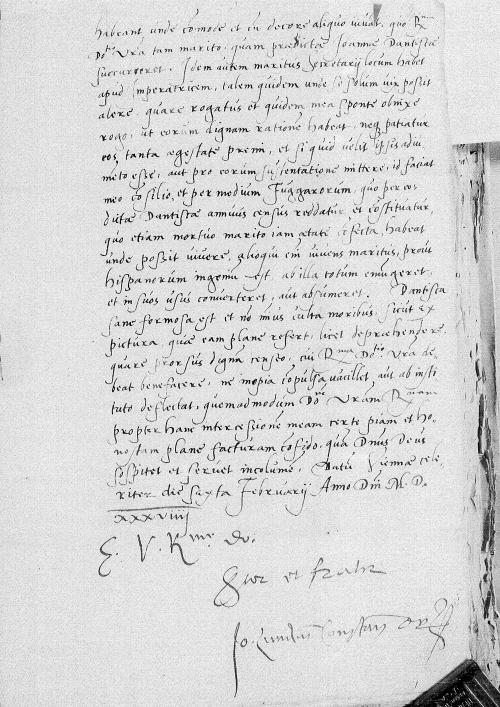 habeant unde comode et cu decore aliquo vivat, quo R.ma
Do: Vra tam marito, quam prædictæ Joannæ Dantiscæ
succurreret. Idem autem maritus secretarij locum habet
apud Imperatricem, talem quidem unde se solum vix possit
alere, quare rogatus et quidem mea sponte obnixe
rogo, ut eorum dignam ratione habeat, neq patiatur
eos, tanta ægestate premi, et si quid velit ipsis adiu
meto esse, aut pro eorum sustentatione mittere, id faciat
meo cosilio, et per modum Fuggarorum, quo per eos
dictæ Dantiscæ annuus census reddatur et costituatur
quo etiam mortuo marito iam ætate cofecta, habeat
unde possit vivere, alioqui em vivens maritus, prout
Hispanorum ingeniu est, ab illa totum emugeret,
et in suos usus converteret, aut absumeret. Dantisca
sane formosa est et no imus culta moribus, sicut ex
pictura, quæ eam plane refert, licet deprehendere
quare prorsus digna censeo, cui R.ma Do: Vra de
beat benefacere, ne inopia copulsa vacillet, aut ab insti
tuto deflectat, quemadmodum Do: Vram R.mam
propter hanc intercessione meam certe piam et ho
nestam plane facturam cofido, qua Dnus Deus
sospitet et servet incolume. Datu Viennæ cele
riter die sexta Februarij Anno Dni M. D.
xxxviij
E. V. R.me Do.
et frater
Jo.